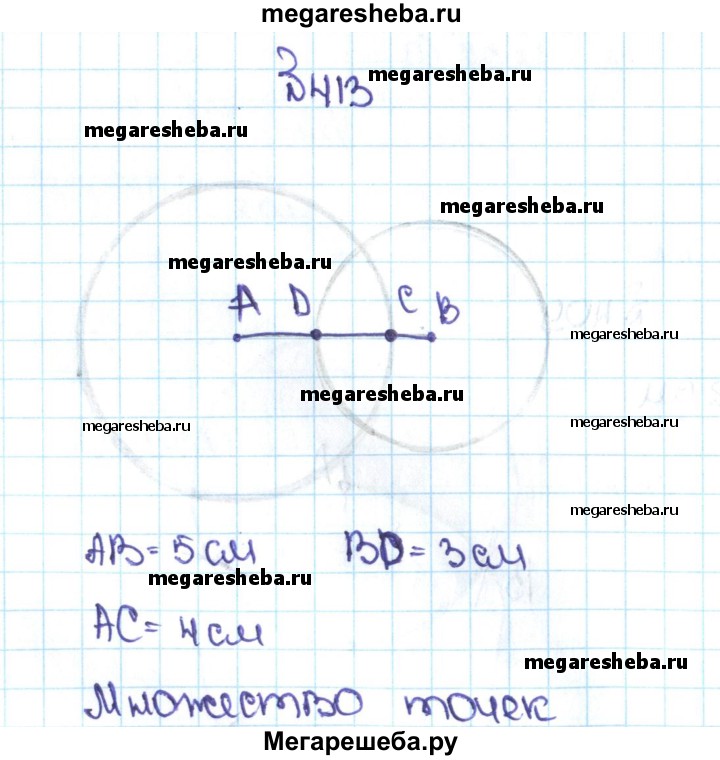 megaresheba.ru
№413 megaresheba.ru
megaresheba.ru
megaresheba.ru
megaresheba.ru
A D C B
megaresheba.ru
megaresheba.ru
megaresheba.ru
megaresheba.ru
megaresheba.ru
AB = 5 см BD = 3 см
megaresheba.ru
AC = 4 см
megaresheba.ru
Множество точек
Мегарешеба.ру